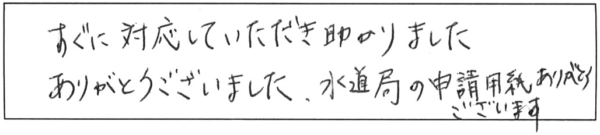 すぐに対応していただき助かりました
ありがとうございました、水道局の申請用紙ありがとう
ございます